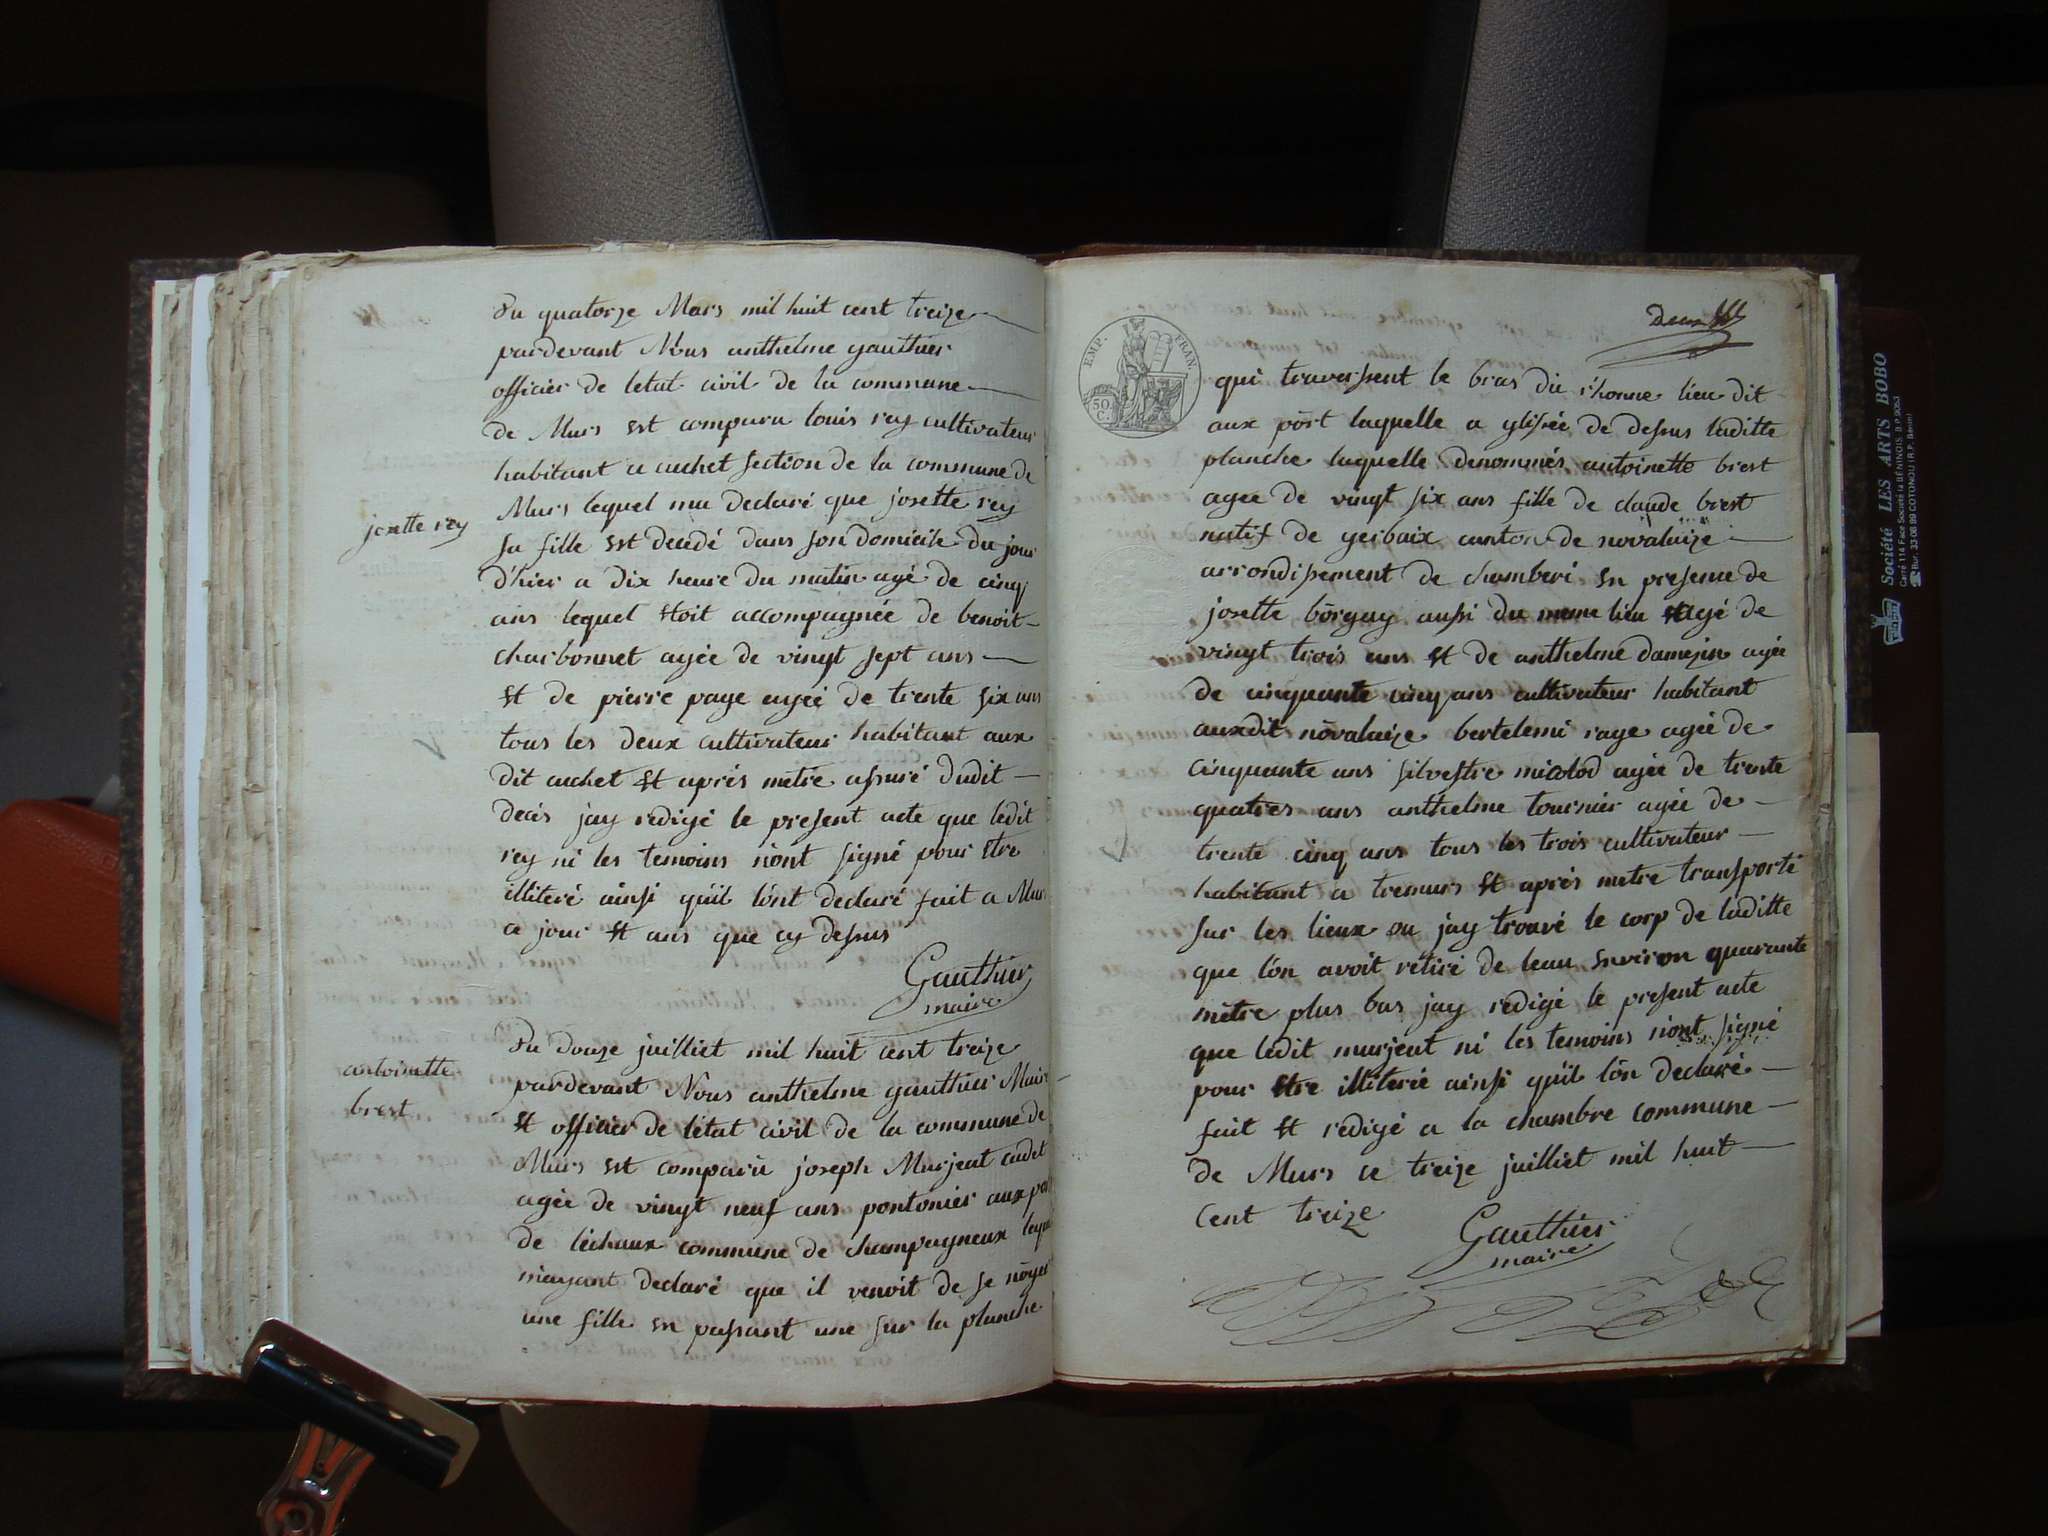 Du quatorze Mars mil huit cent treize
pardevant Nous anthelme gauthier
officier de letat civil de la commune
de Murs est comparu louis rey cultivateur
habitant a cuchet section de la commune de
Murs lequel ma declaré que josette rey
sa fille est decedé dans son domicile du jour
d'hier a dix heure du matin agé de cinq
ans lequel etoit accompagnée de benoit
charbonnet agée de vingt sept ans
et de pierre page agée de trente six ans
tous les deux cultivateur habitant aux
dit cuchet et aprés metre assuré dudit
decés jay redigé le present acte que ledit
rey ni les temoins n'ont signé pour etre
illiteré ainsi quil l'ont declaré fait a Murs
ce jour et ans que cy dessus
Gauthier
maire
josette rey
Du douze juilliet mil huit cent treize
pardevant Nous anthelme gauthier Maire
et officier de letat civil de la commune de
Murs est comparu joseph Murjeut cadet
agée de vingt neuf ans pontonier aux port
de léchaux commune de champagneux lequel
m'ayant declaré que il venoit de se nôyer
une fille en passant une sur la planche
antoinette
brest
EMP. FRAN.
50
C.
qui traversent le bras du rhonne lieu dit
aux pôrt laquelle a glissée de dessus laditte
planche laquelle denommés antoinette brest
agee de vingt six ans fille de claude brest
natif de gerbaix canton de novalaize
arrondissement de chamberi en presence de
josette bôrgey aussi du meme lieu et agé de
vingt trois ans et de anthelme damezin agée
de cinquante cinq ans cultivateur habitant
auxdit nôvalaize bertelemi raye agée de
cinquante ans silvestre micolod agée de trente
quatres ans anthelme tournier agée de
trente cinq ans tous les trois cultivateur
habitant a tremurs et aprés metre transporté
sur les lieux ou jay trouvé le corp de laditte
que l'on avoit retiré de leau environ quarante
métre plus bas jay redigé le present acte
que ledit murjeut ni les temoins n'ont signé
pour etre illiterié ainsi quil l'ôn declaré
fait et redigé a la chambre commune
de Murs ce treize juilliet mil huit
cent treize
Gauthier
maire
Société LES ARTS BOBO